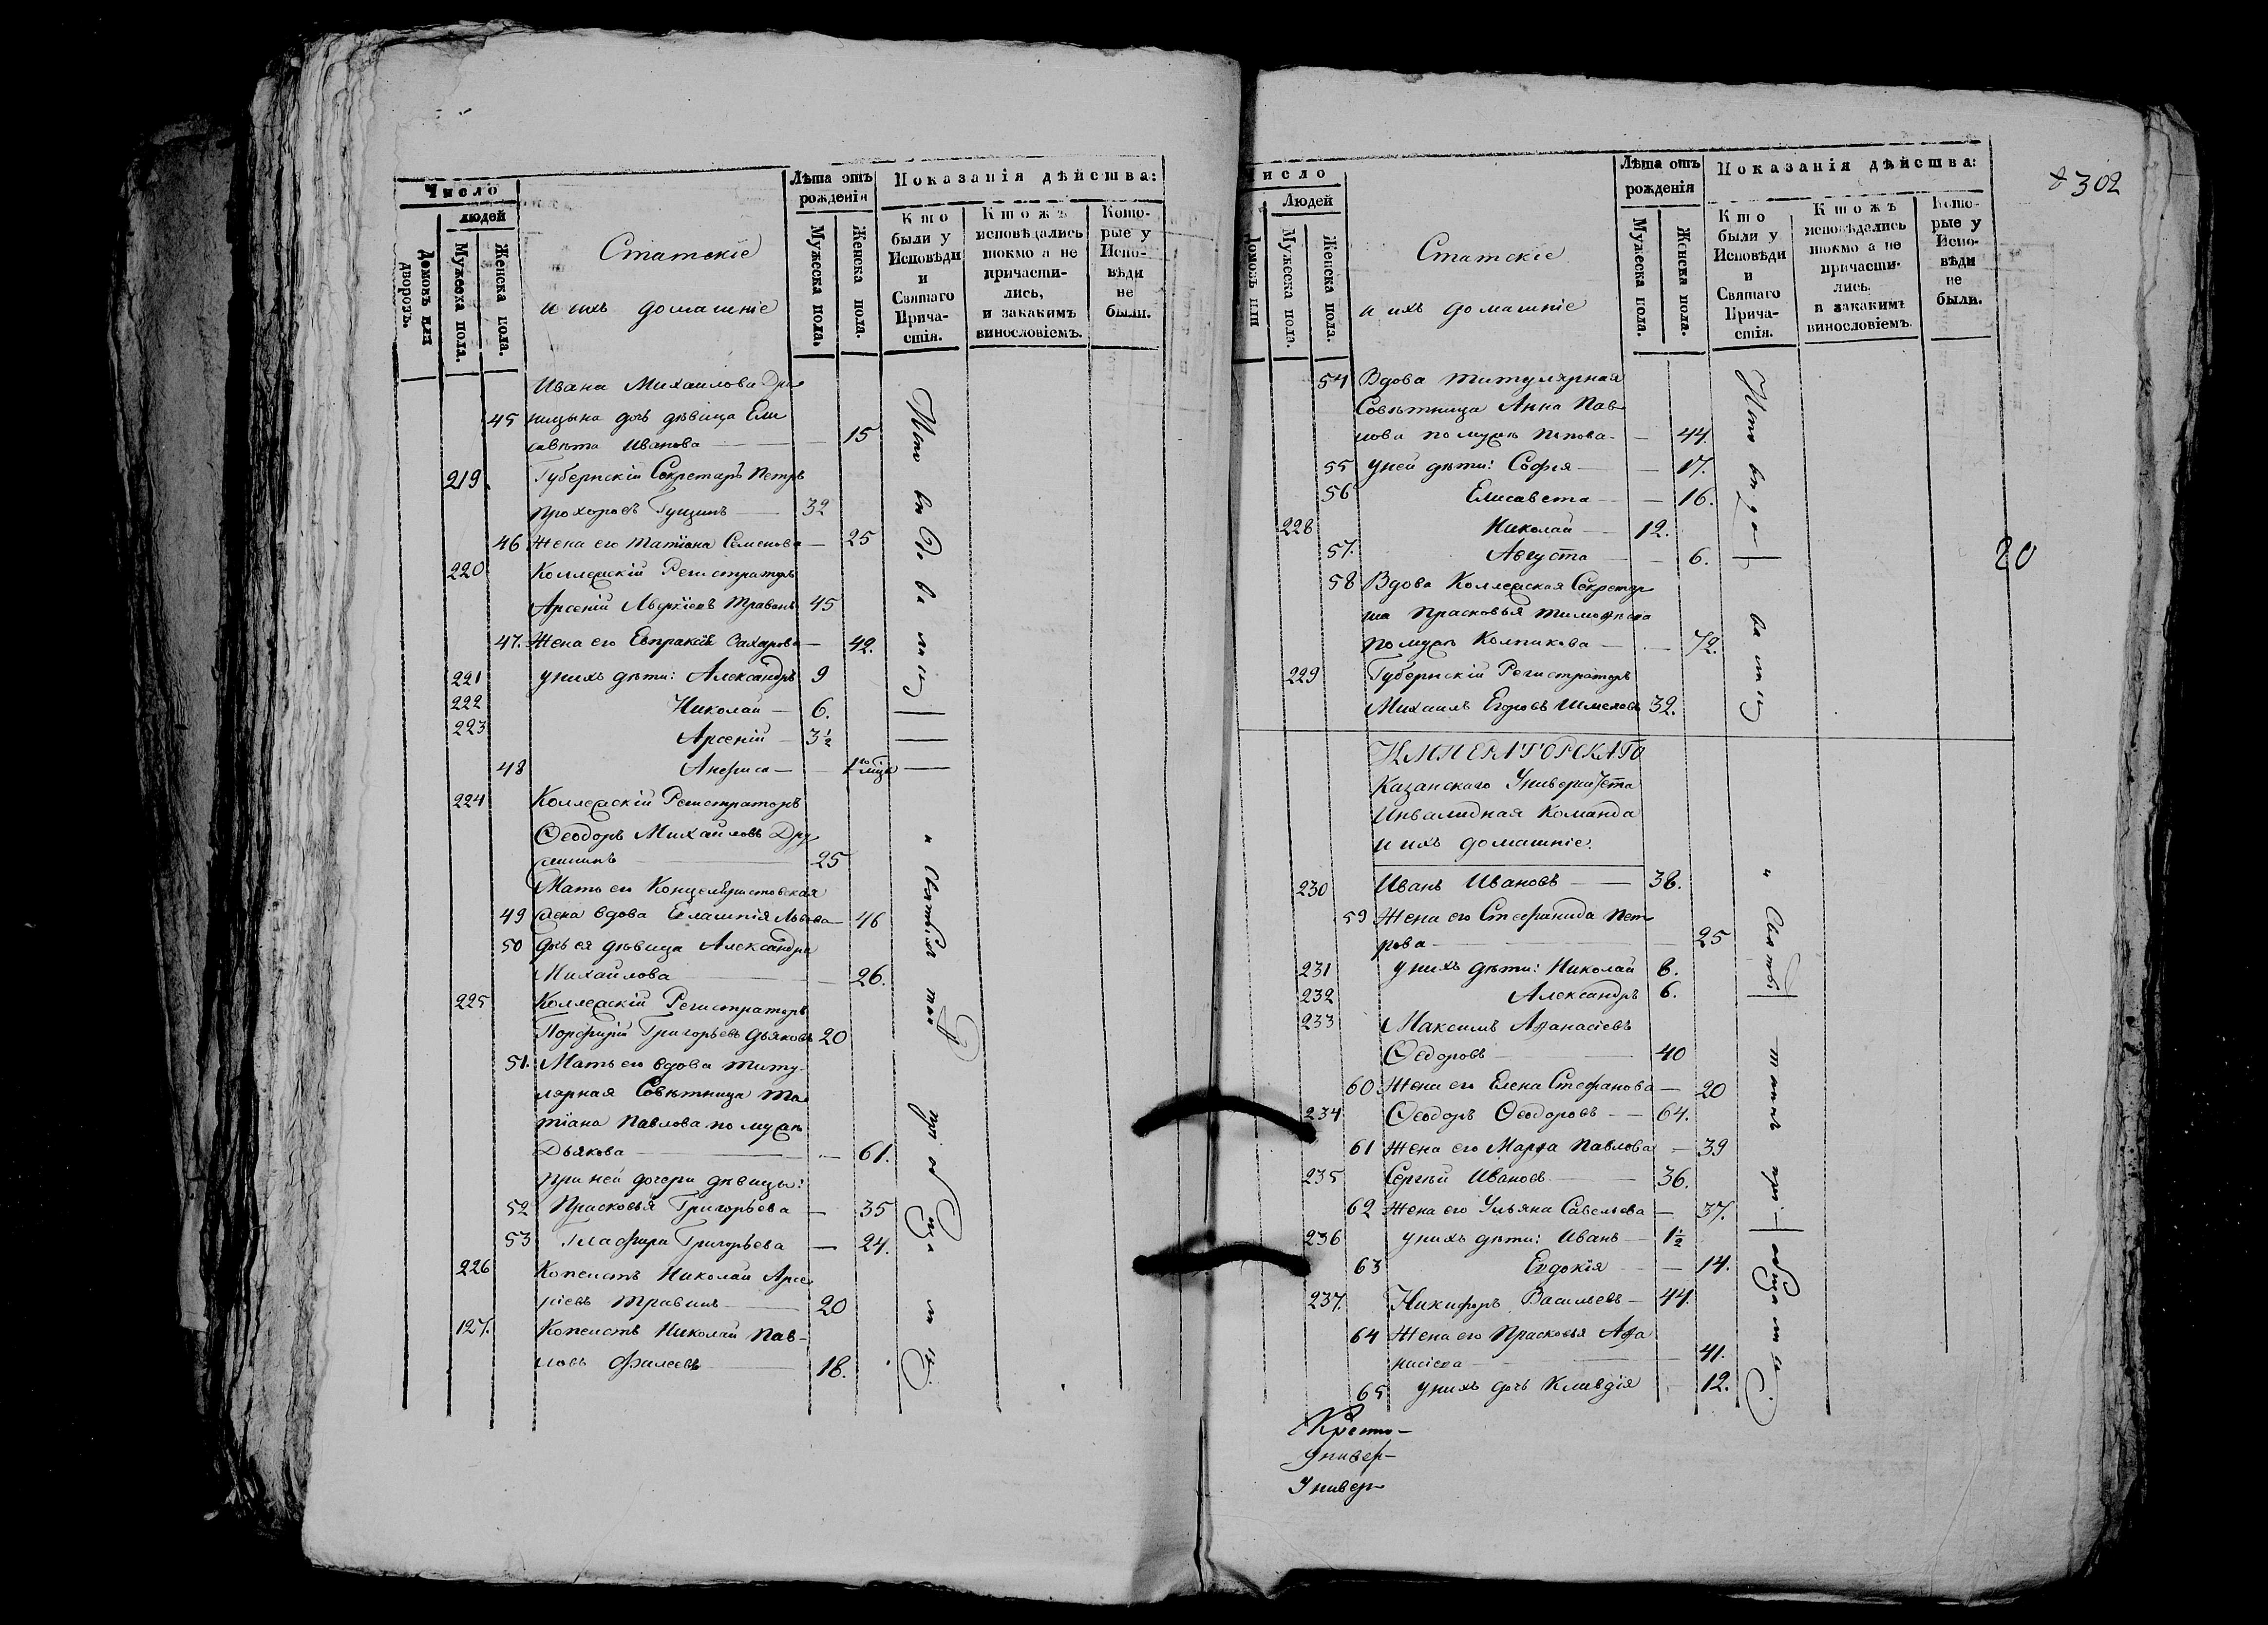 Число
людей
Домовъ или дворовъ.
Мужеска пола.
Женска пола.
Статскіе
и ихъ домашніе
Лѣта отъ рожденія
Мужеска пола.
Женска пола.
Показанія дѣйства:
Кто были у Исповѣди и Святаго Причастія.
Ктожъ исповѣдались токмо а не причастились, и закакимъ винословіемъ.
Которые у Исповѣди не были.
Ивана Михаилова
45 дочь дѣвица Ели
савѣта Иванова — — 15
219 Губернскій Секретарь Петръ
Прохоровъ Гущинъ — 32
46 Жена его Татіана Семенова — 25
220 Коллежскій Регистраторъ
Арсеній Травинъ 45
47. Жена его Евпраксія Сахарова — 42.
221 у нихъ дѣти: Александръ 9
222 Николай — 6.
223 Арсеній — 3½
48 Анфиса —
224 Коллежскій Регистраторъ
Ѳеодоръ Михайловъ Дру
жининъ — 25
Мать его Канцеляристовская
49 жена вдова Евлампія Львова — 46
50 дочь ея дѣвица Александра
Михайлова — — 26.
225 Коллежскій Регистраторъ
Порфирій Григорьевъ Дьяковъ 20
51. Мать его вдова Титу
лярная Совѣтница Та
тіана Павлова по мужѣ
Дьякова — — 61.
при ней дочери дѣвицы:
52 Прасковья Григорьева — 35
53 Глафира Григорьева — 24.
226 Копеистъ Николай Арсе
ніевъ Травинъ — 20
127. Копеистъ Николай Пав-
ловъ Фалеевъ — 18.
302
Число
Людей
Домовъ или
Мужеска пола.
Женска пола.
Статскіе
и ихъ домашніе
Лѣта отъ рожденія
Мужеска пола.
Женска пола.
Показанія дѣйства:
Кто были у Исповѣди и Святаго Причастія.
Ктожъ исповѣдались токмо а не причастились, и закакимъ винословіемъ.
Которые у Исповѣди не были.
54 Вдова Титулярная
Совѣтница Анна Пав-
лова по мужѣ Попова — — 44.
55 у ней дѣти: Софія — — 17.
56 Елисавета — — 16.
228 Николай — 12.
57. Августа — — 6.
20
58 Вдова Коллежская Секретар
ша Прасковья Тимофѣева
по мужѣ Колпикова — — 72.
229 Губернскій Регистраторъ
Михаилъ Егоровъ Шмелевъ 32.
ИМПЕРАТОРСКАГО
Казанскаго Университета
Инвалидная Команда
и ихъ домашніе.
230 Иванъ Ивановъ — 38.
59 Жена его Стефанида Пет
рова — — 25
231 у нихъ дѣти: Николай 8.
232 Александръ 6.
233 Максимъ Аѳанасіевъ
Ѳедоровъ — 40
60 Жена его Елена Стефанова — 20
234 Ѳеодоръ Ѳеодоровъ — 64.
61 Жена его Марѳа Павлова — 39
235 Сергѣй Ивановъ — 36.
62 Жена его Ульяна Савельева — 37.
236 у нихъ дѣти: Иванъ — 1½
63 Евдокія — — 14.
237. Никифоръ Васильевъ — 44.
64 Жена его Прасковья Аѳа
насіева — — 41.
65 у нихъ дочь Клавдія 12.
Универ-
Универ-